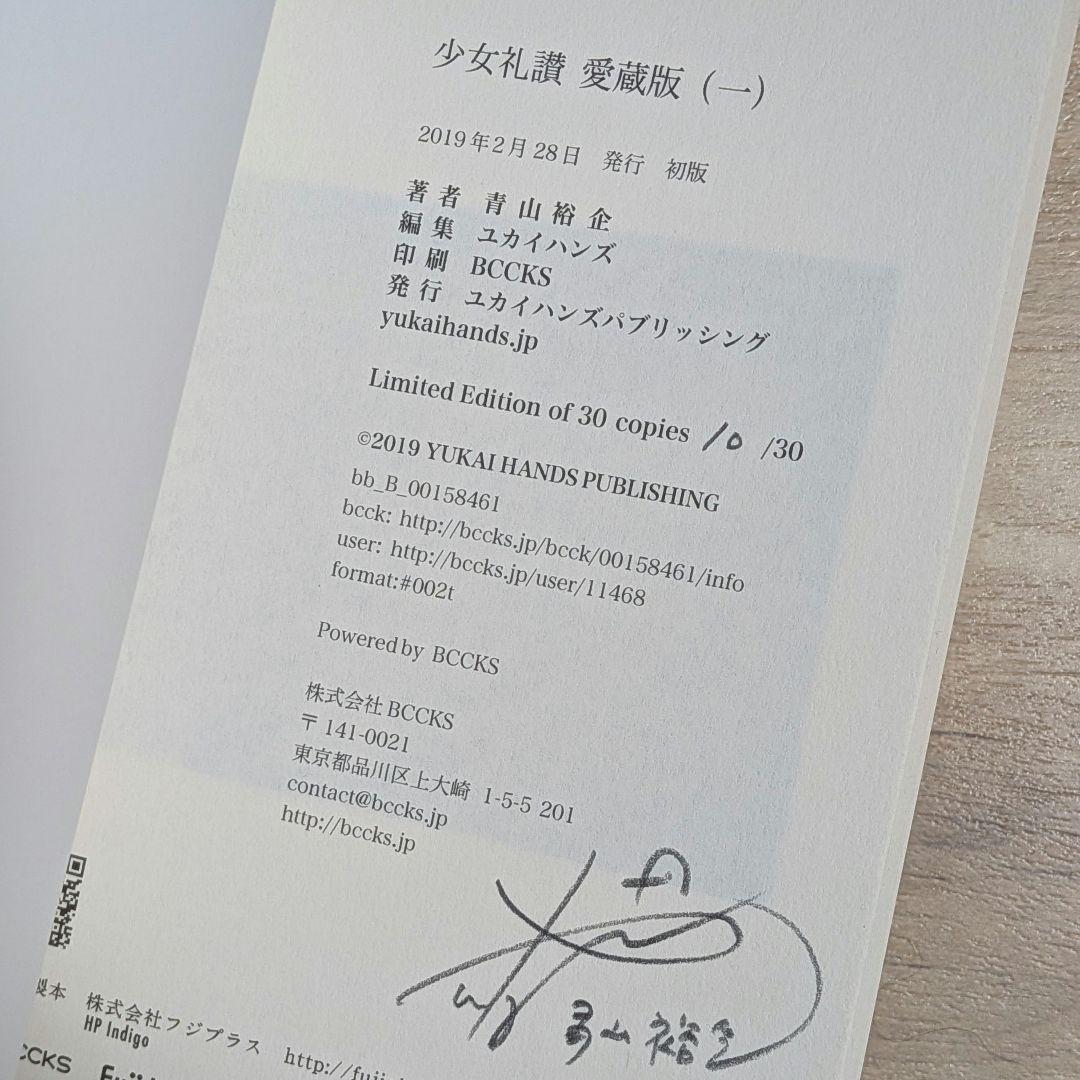 少女礼讃 愛蔵版 (一)
2019年2月28日 発行 初版
著者 青山裕企
編集 ユカイハンズ
印刷 BCCKS
発行 ユカイハンズパブリッシング
yukaihands.jp
Limited Edition of 30 copies 10 /30
©2019 YUKAI HANDS PUBLISHING
bb_B_00158461
bcck: http://bccks.jp/bcck/00158461/info
user: http://bccks.jp/user/11468
format:#002t
Powered by BCCKS
株式会社 BCCKS
〒 141-0021
東京都品川区上大崎 1-5-5 201
contact@bccks.jp
http://bccks.jp
青山裕企
製本 株式会社フジプラス http://fuji
HP Indigo
CCKS